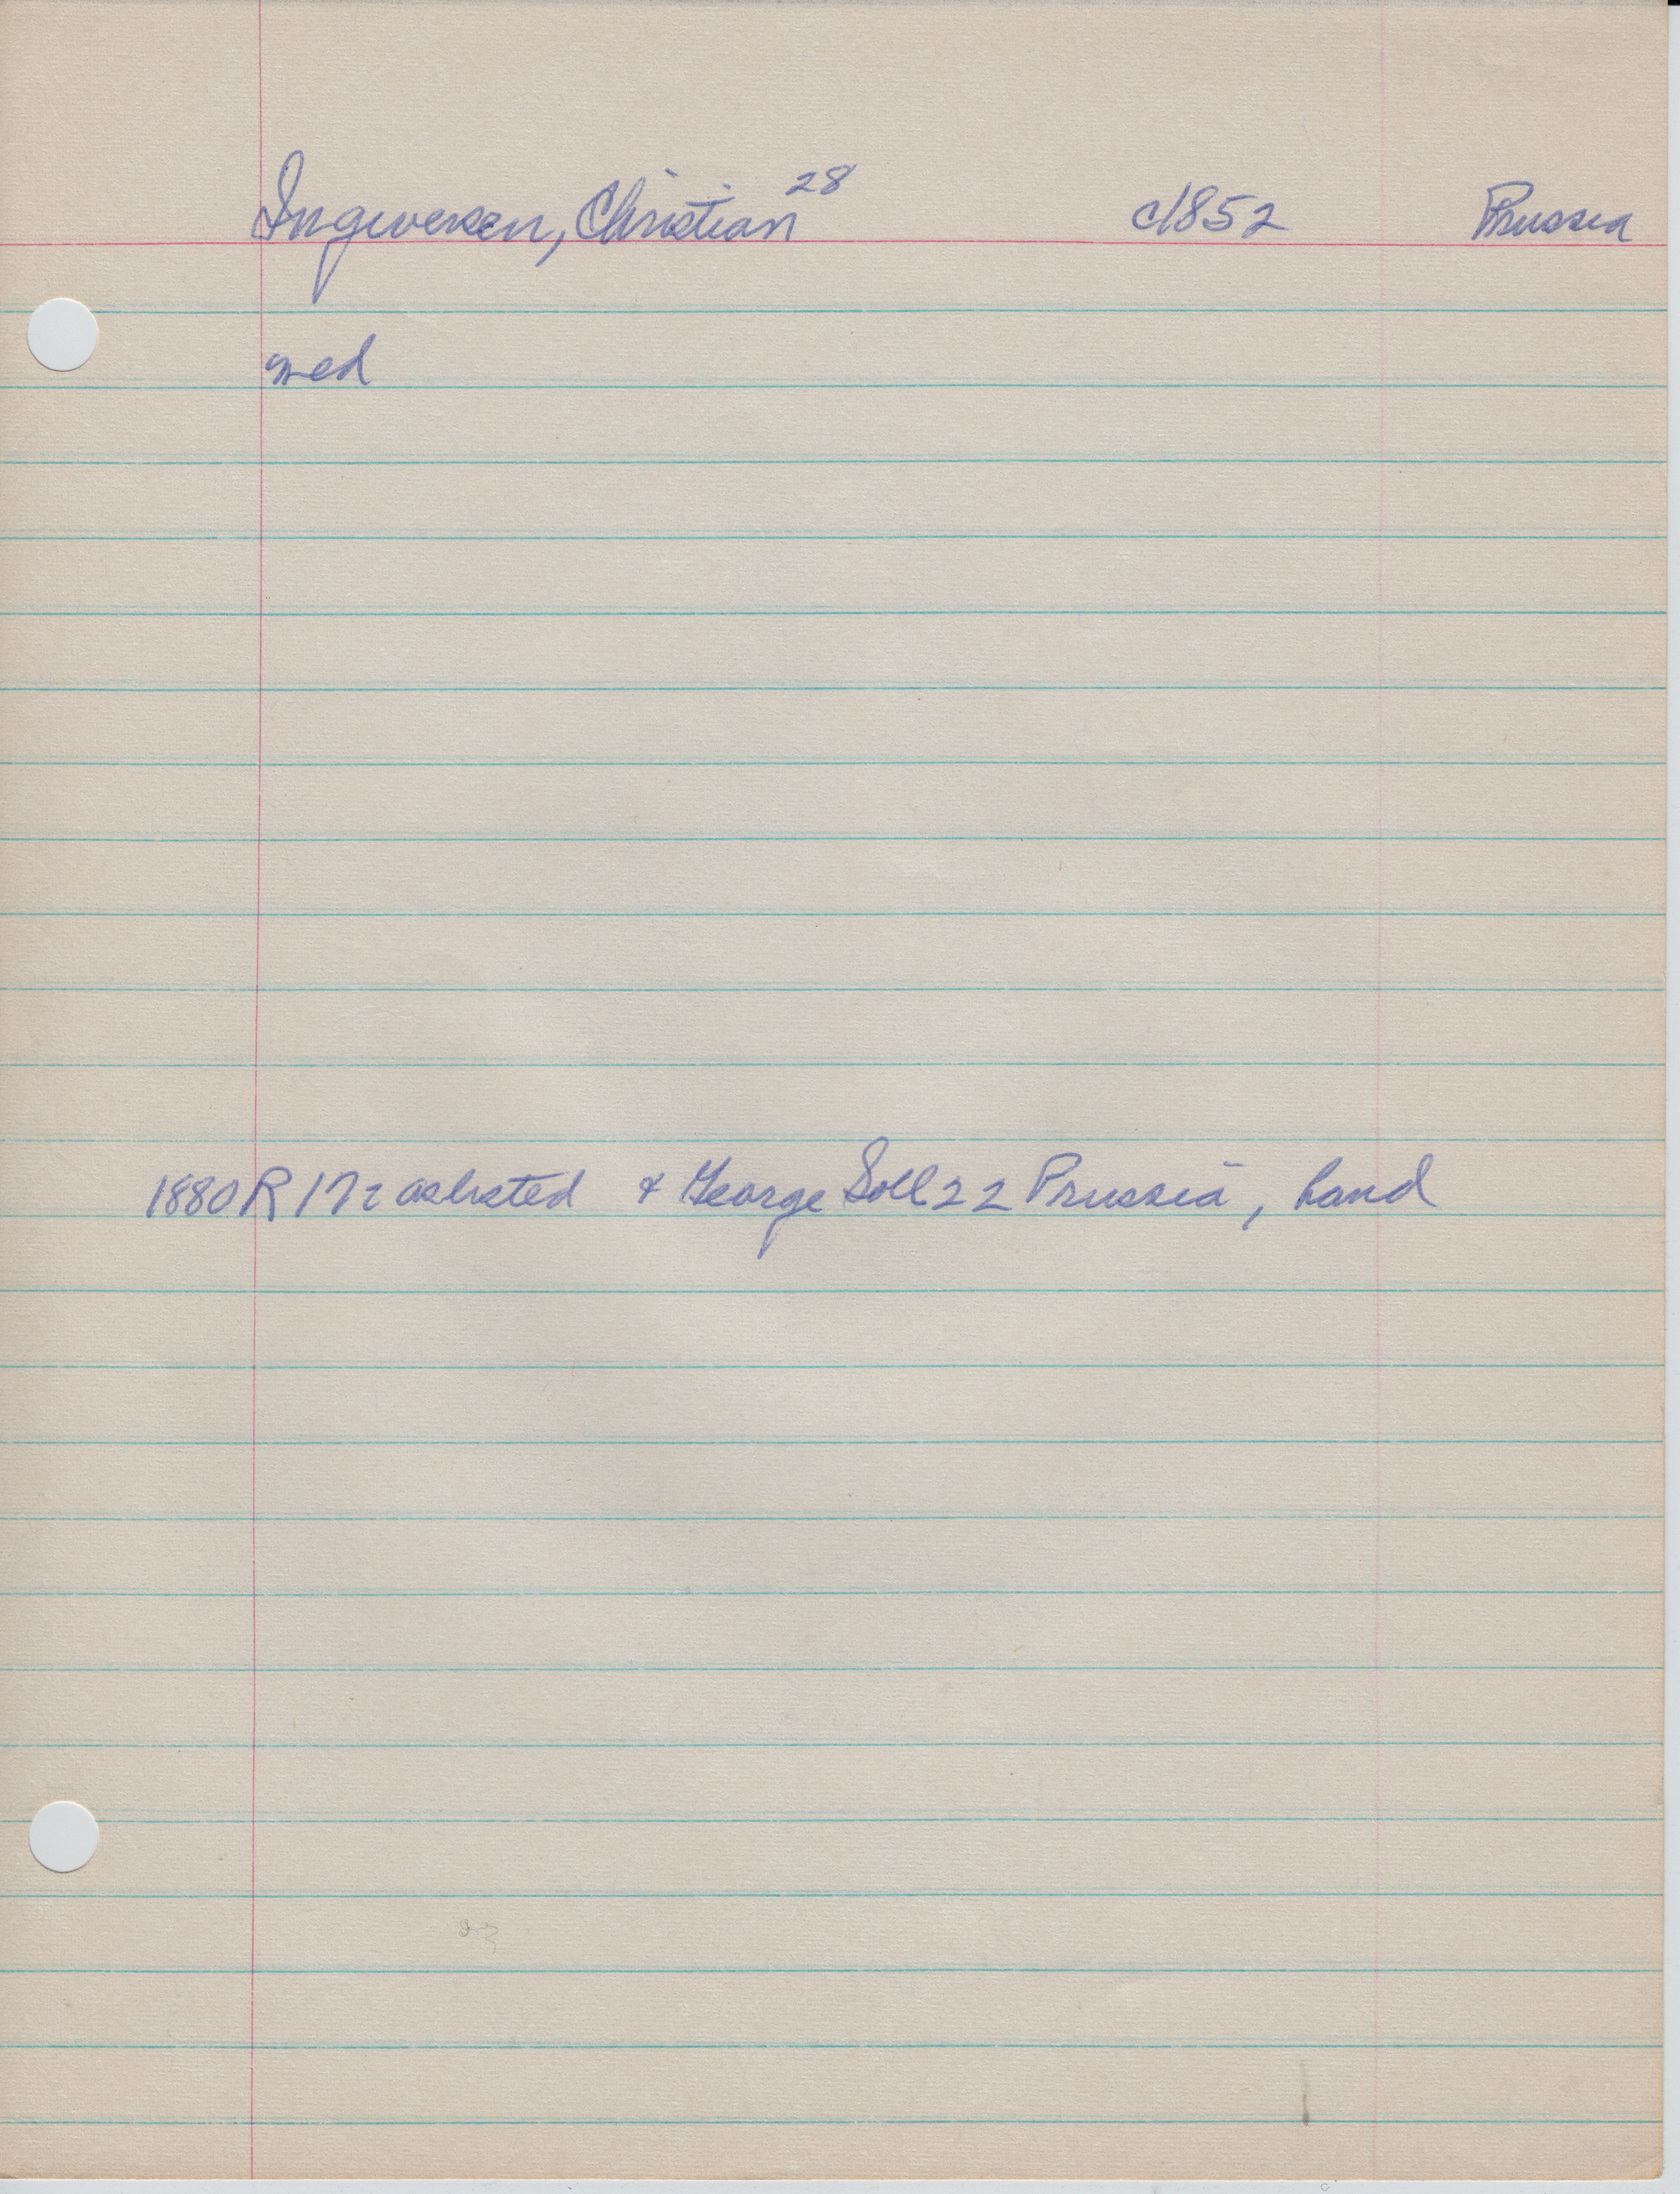 Ingwersen, Christian 28 c1852 Prussia
med
1880 R 172 as listed + George Soll 22 Prussia, hand